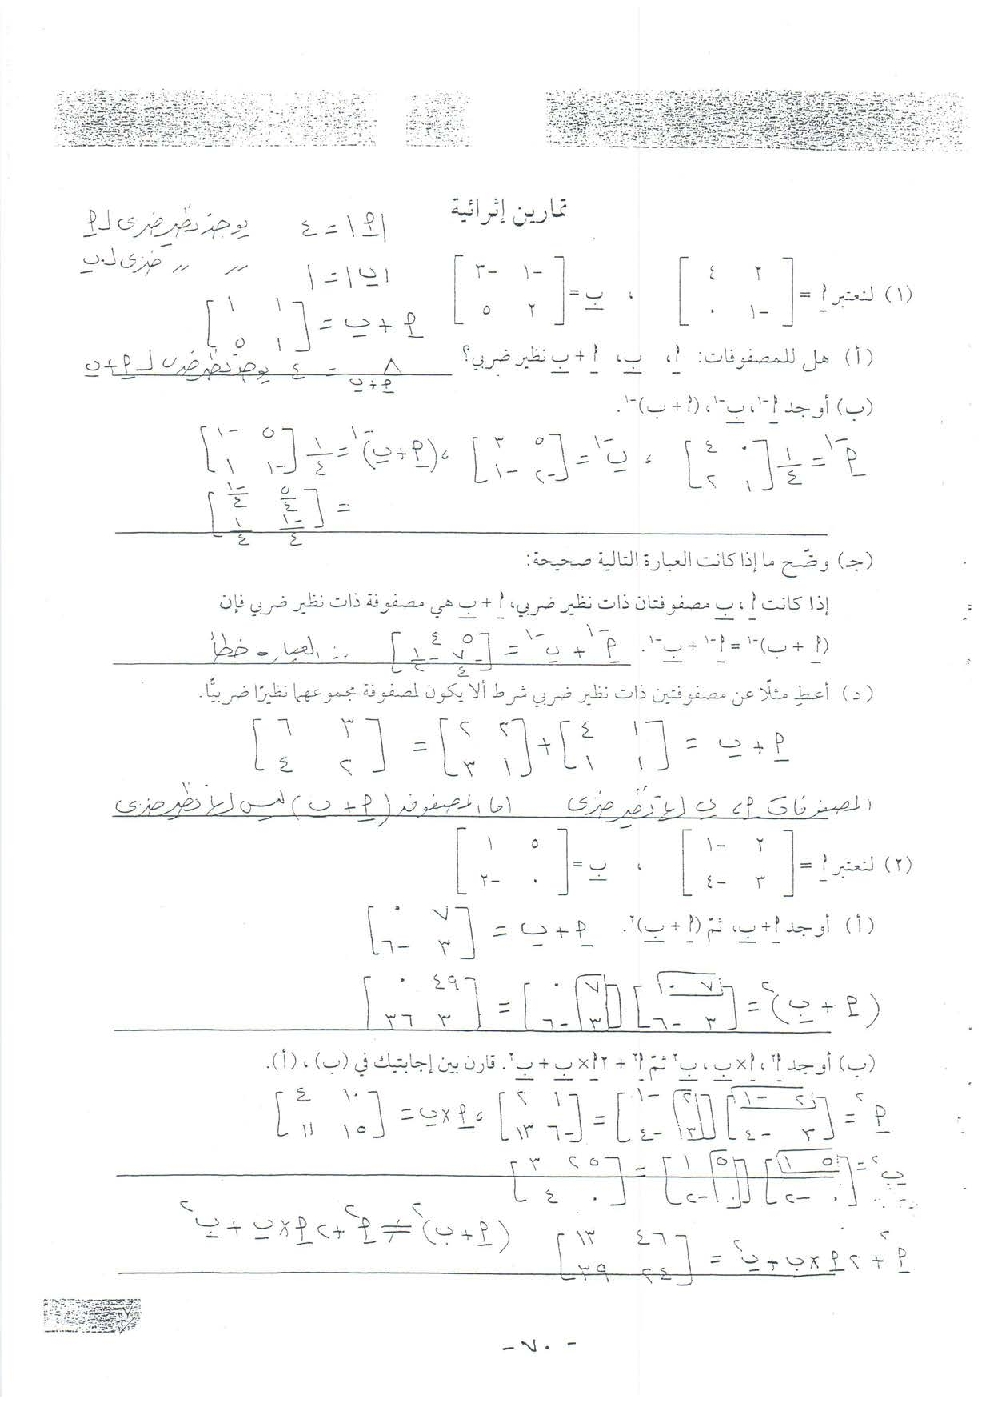 تمارين إثرائية
|أ| = ٤ يوجد نظير ضربى لـ أ
|ب| = ١ " " ضربى لـ ب
(١) لنعتبر أ = [٢ ٤ ؛ -١ ٠] ، ب = [-١ -٣ ؛ ٢ ٥]
أ + ب = [١ ١ ؛ ١ ٥]
(أ) هل للمصفوفات: أ، ب، أ + ب نظير ضربي؟
Δ أ+ب = ٤ يوجد نظير ضربى لـ أ + ب
(ب) أوجد أ⁻¹، ب⁻¹، (أ + ب)⁻¹.
أ⁻¹ = ١/٤ [٠ -٤ ؛ ١ ٢] ، ب⁻¹ = [٥ ٣ ؛ -٢ -١] ، (أ + ب)⁻¹ = ١/٤ [٥ -١ ؛ -١ ١]
= [٥/٤ -١/٤ ؛ -١/٤ ١/٤]
(جـ) وضّح ما إذا كانت العبارة التالية صحيحة:
إذا كانت أ، ب مصفوفتان ذات نظير ضربي، أ + ب هي مصفوفة ذات نظير ضربي فإن
(أ + ب)⁻¹ = أ⁻¹ + ب⁻¹. أ⁻¹ + ب⁻¹ = ∴ العبارة خطأ
(د) أعطِ مثلًا عن مصفوفتين ذات نظير ضربي شرط ألا يكون لمصفوفة مجموعهما نظيرًا ضربيًّا.
أ + ب = [١ ٤ ؛ ١ ١] + [٢ ٢ ؛ ١ ٣] = [٣ ٦ ؛ ٢ ٤]
المصفوفتان أ، ب لها نظير ضربى اما المصفوفة (أ + ب) ليس لها نظير ضربى
(٢) لنعتبر أ = [٢ -١ ؛ ٣ -٤] ، ب = [٥ ١ ؛ ٠ -٢]
(أ) أوجد أ + ب، ثمّ (أ + ب)². أ + ب = [٧ ٠ ؛ ٣ -٦]
(أ + ب)² = [٧ ٠ ؛ ٣ -٦] [٧ ٠ ؛ ٣ -٦] = [٤٩ ٠ ؛ ٣ ٣٦]
(ب) أوجد أ²، أ × ب، ب² ثمّ أ² + ٢أ × ب + ب². قارن بين إجابتيك في (ب)، (أ).
أ² = [٢ -١ ؛ ٣ -٤] [٢ -١ ؛ ٣ -٤] = [١ ٢ ؛ -٦ ١٣] ، أ × ب = [١٠ ٤ ؛ ١٥ ١١]
ب² = [٥ ١ ؛ ٠ -٢] [٥ ١ ؛ ٠ -٢] = [٢٥ ٣ ؛ ٠ ٤]
أ² + ٢أ × ب + ب² = [٤٦ ١٣ ؛ ٢٤ ٣٩] (أ + ب)² ≠ أ² + ٢أ × ب + ب²
- ٧٠ -